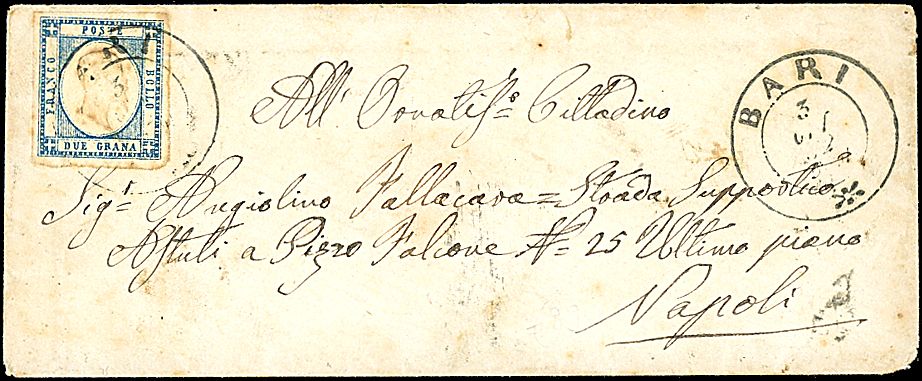 POSTE
FRANCO
BOLLO
DUE GRANA
BARI
All' Ornatis.o Cittadino
Sig.r Angiolino Fallacara = Strada Supportico
Astuti a Pizzo Falcone N.o 25 Ultimo piano
Napoli